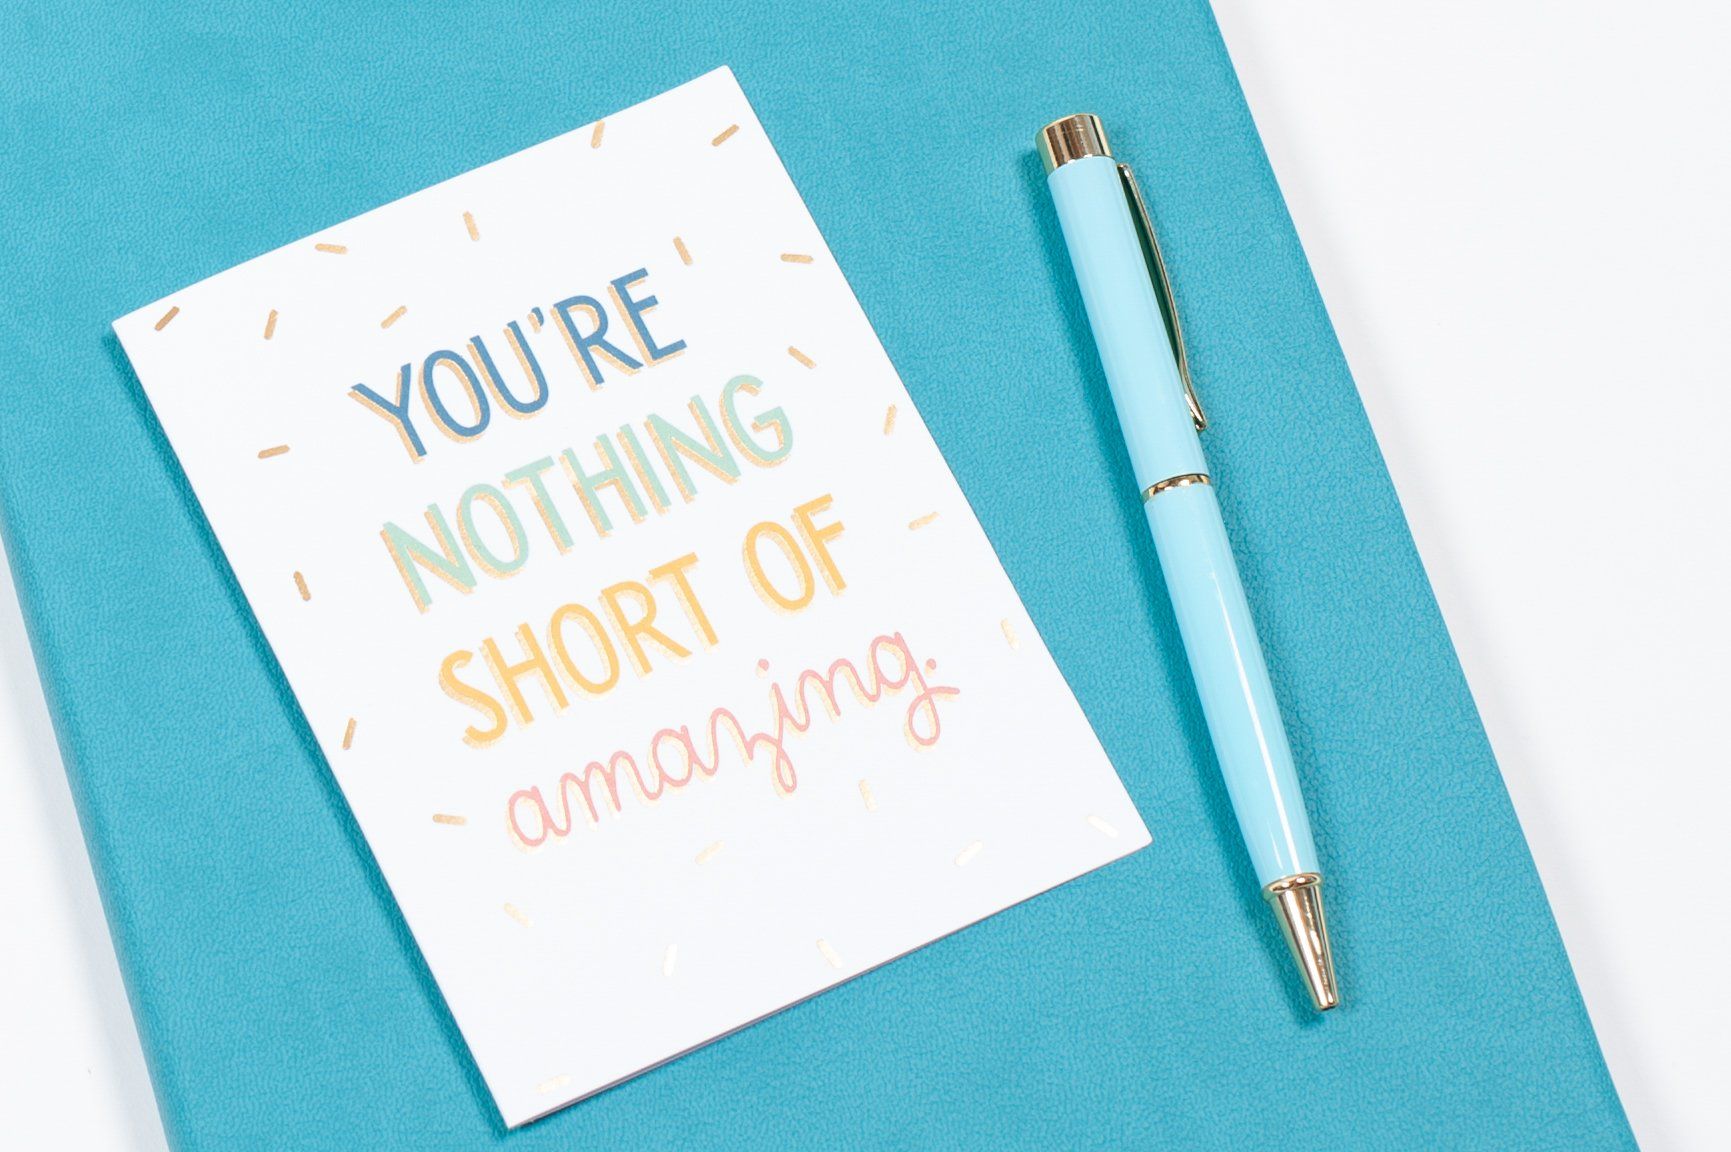 YOU'RE
NOTHING
SHORT OF
amazing.